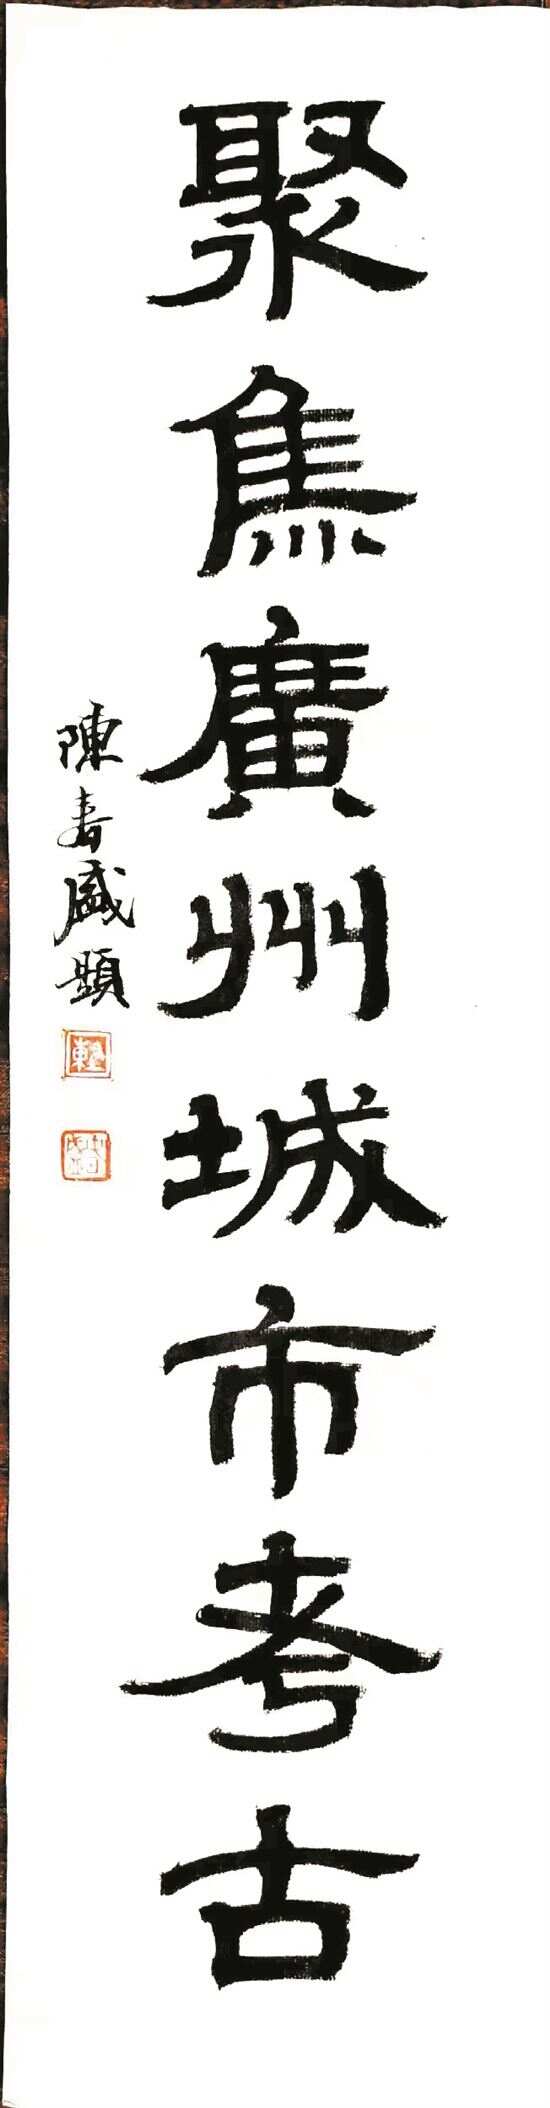 聚焦廣州城市考古
陳春盛題